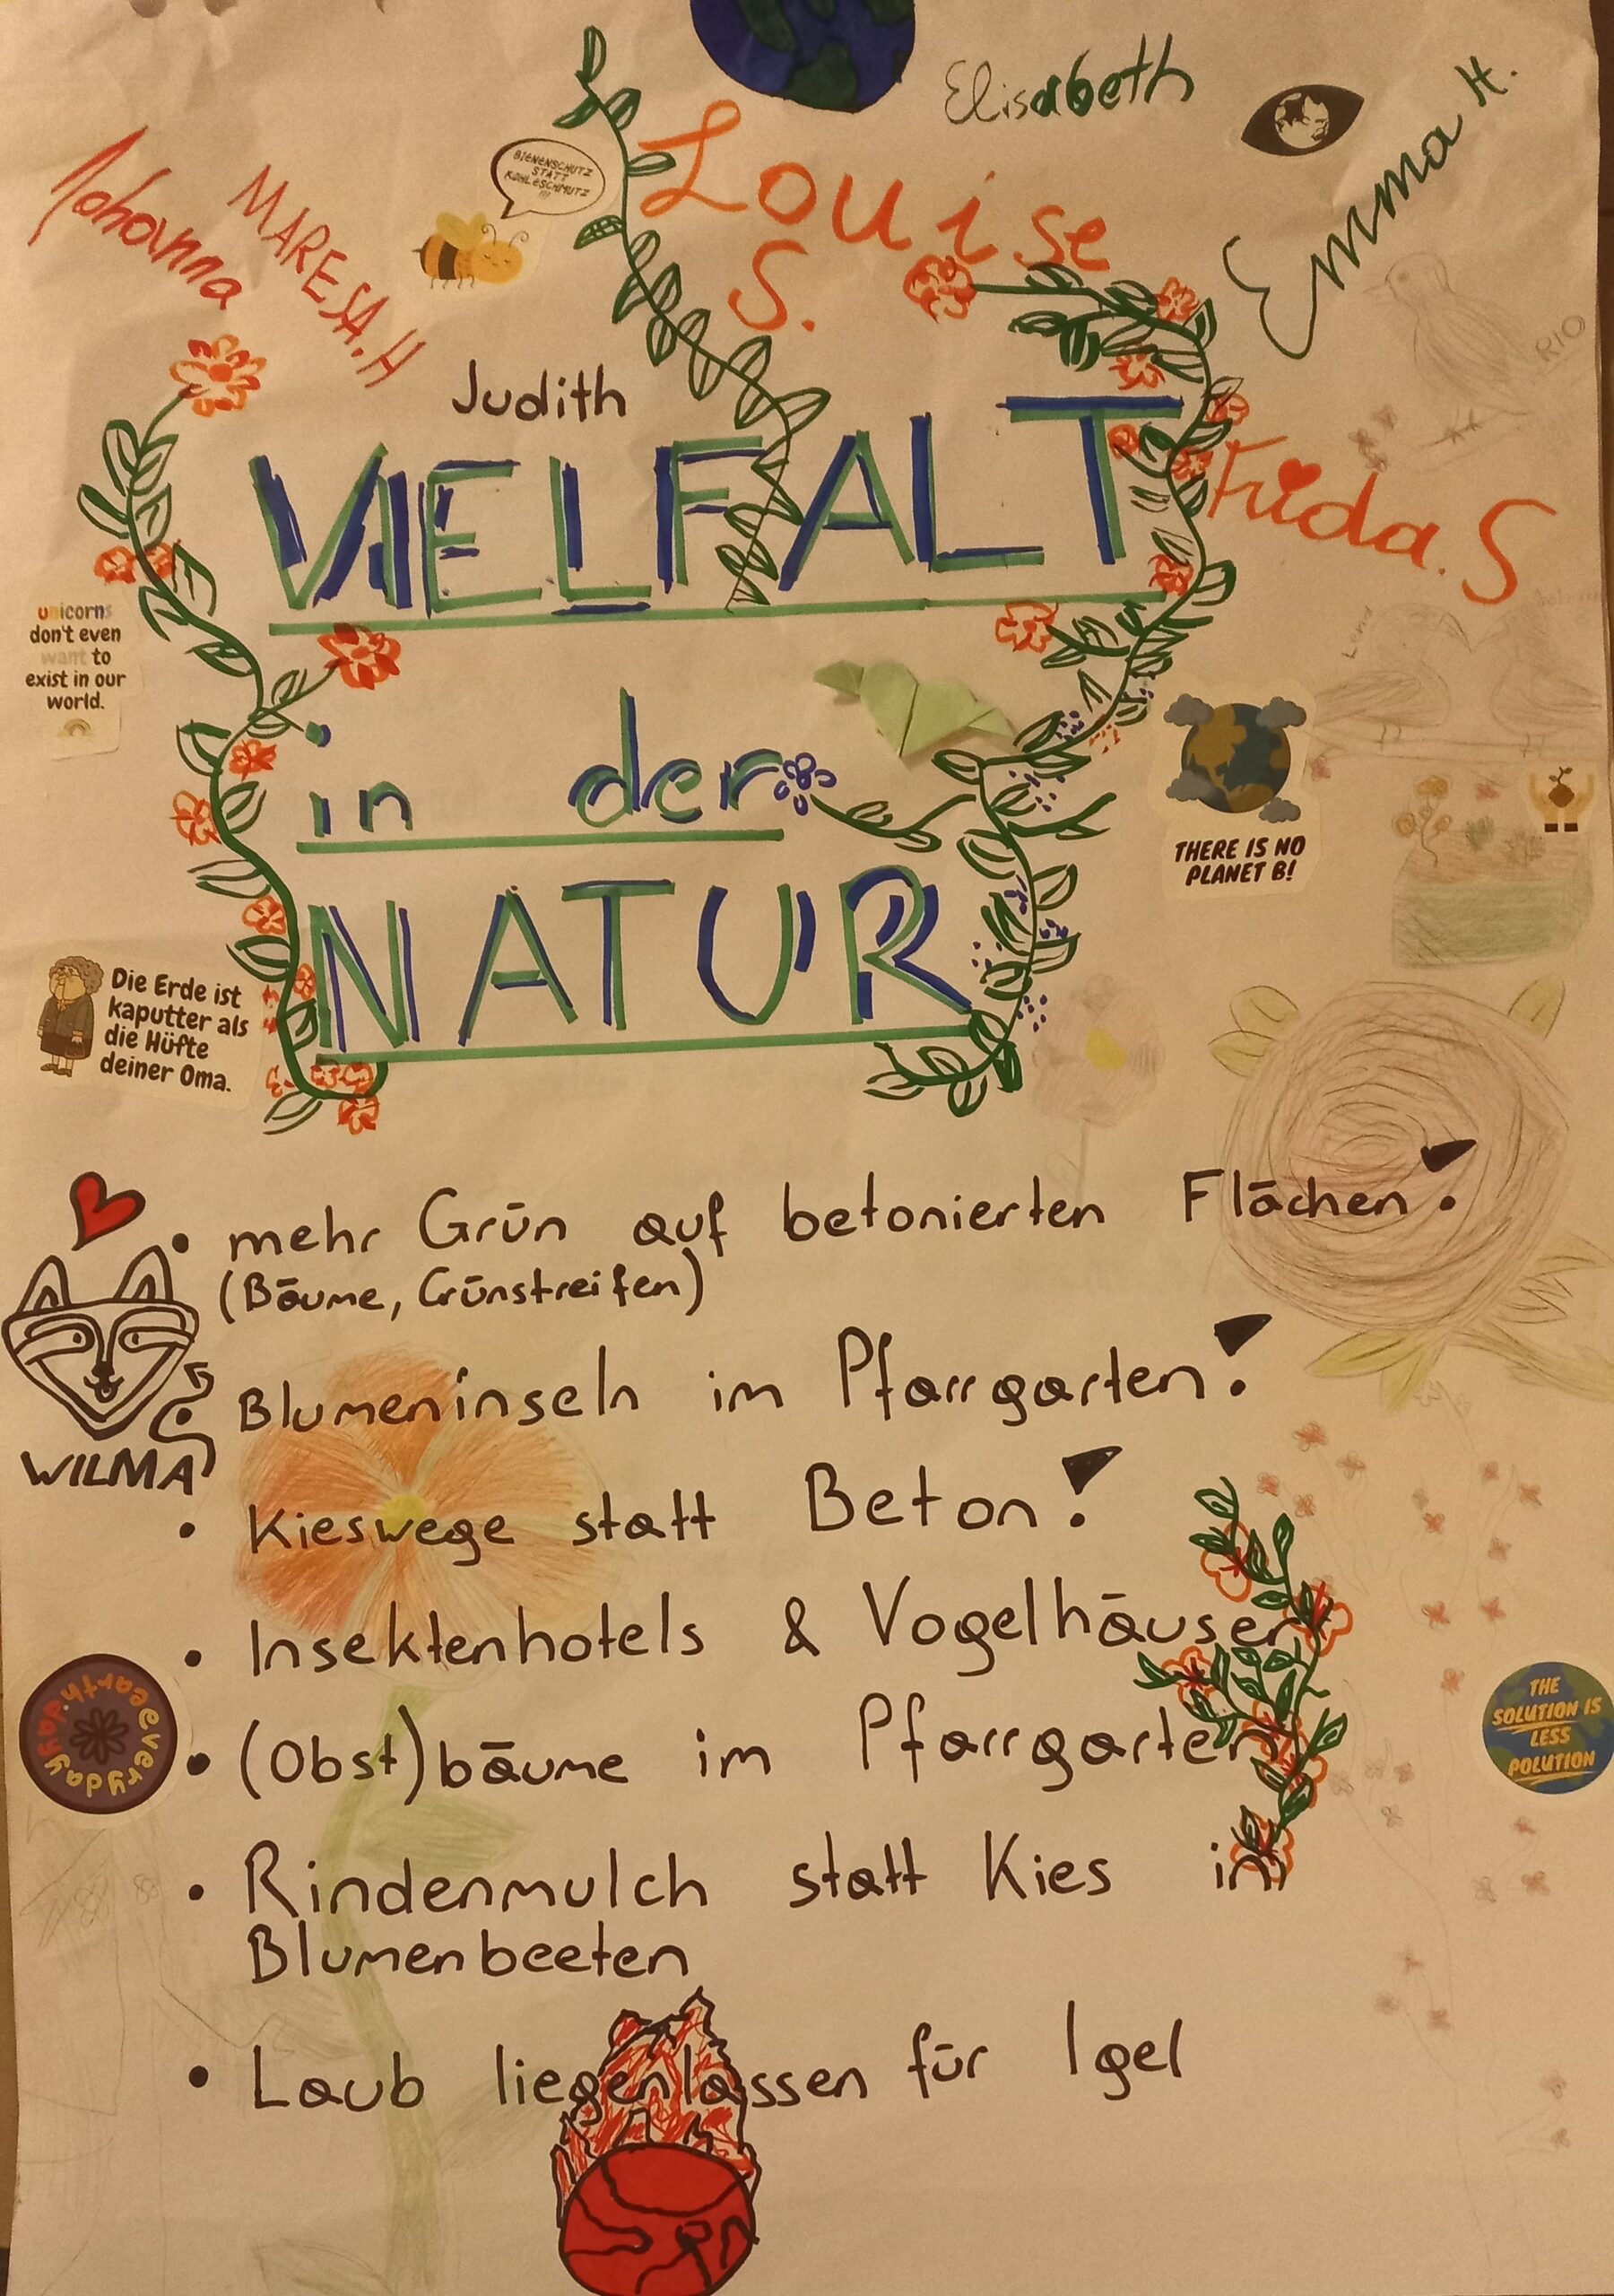 Elisabeth
Emma H.
Johanna
MARESA.H
BIENENSCHUTZ
STATT
KOHLESCHMUTZ
!!!
Louise
S.
RIO
Judith
Frida.S
VIELFALT
in der
NATUR
unicorns
don't even
want to
exist in our
world.
THERE IS NO
PLANET B!
Die Erde ist
kaputter als
die Hüfte
deiner Oma.
• mehr Grün auf betonierten Flächen!
(Bäume, Grünstreifen)
• Blumeninseln im Pfarrgarten!
WILMA
• Kieswege statt Beton!
• Insektenhotels & Vogelhäuser
• (Obst)bäume im Pfarrgarten
everyday
earth day
THE
SOLUTION IS
LESS
POLUTION
• Rindenmulch statt Kies in
Blumenbeeten
• Laub liegenlassen für Igel